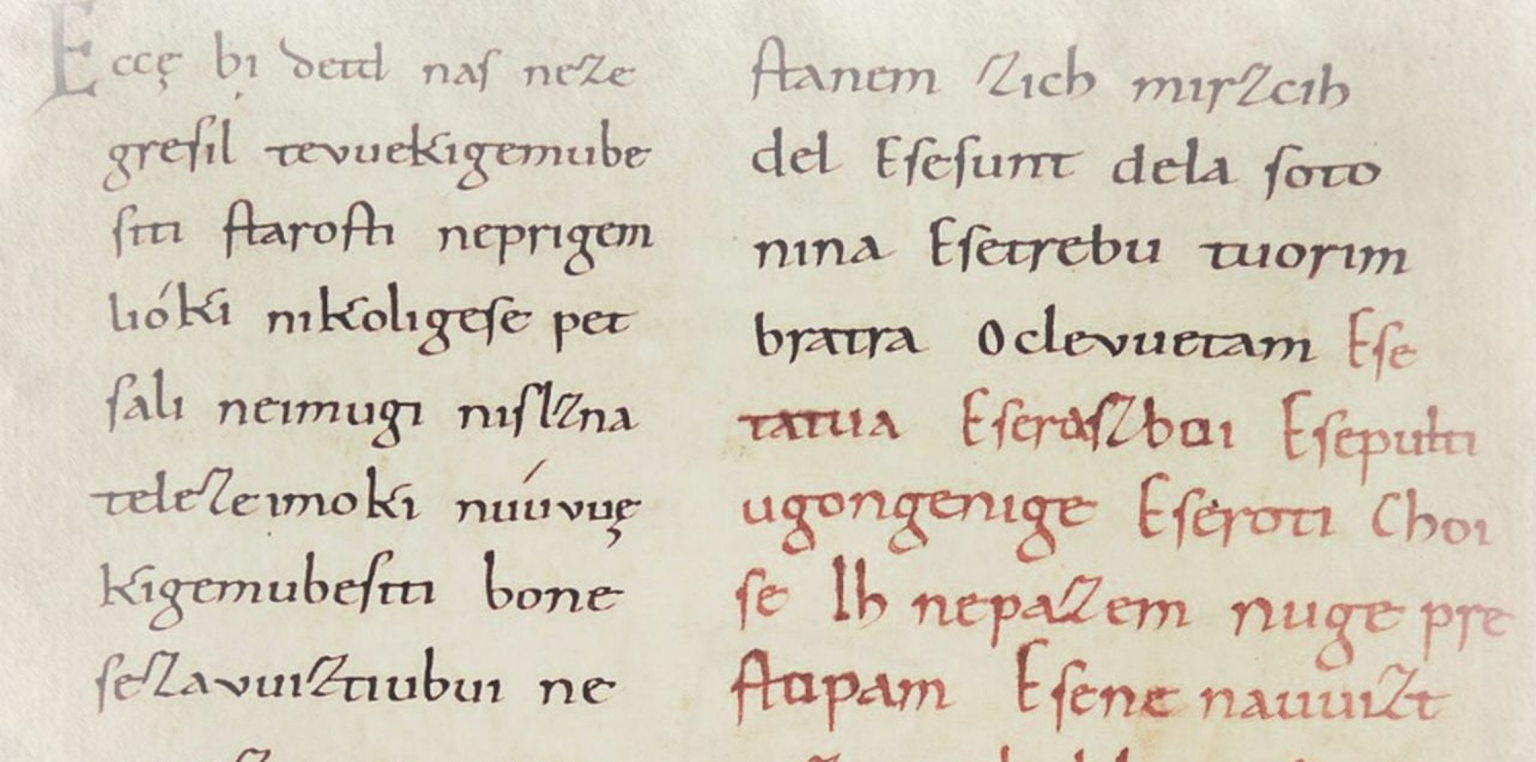 Eccę bi detd naſ neze
greſil tevuekigemube
ſiti ſtaroſti neprigem
lióki nikoligeſe pet
ſali neimugi niſlzna
telezeimoki núúvuę
kigemubeſiti bone
ſezavuiztiubui ne
ſtanem zich mirzcih
del Eſeſunt dela ſoto
nina Eſetrebu tuorim
bratra Oclevuetam Eſe
tatua Eſeraſzboi Eſepulti
ugongenige Eſeroti Choi
ſe Ih nepazem nuge pre
ſtopam Eſene nauuizt